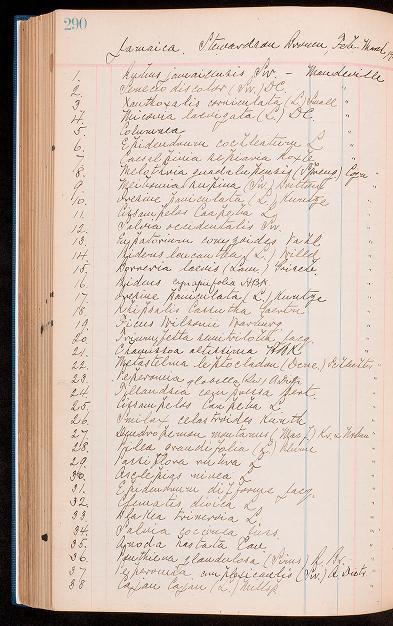 290
Jamaica. Stewardson Brown Feb. March
1. Rytus jamaicensis Sw. - Mandeville
2. Senecio discolor (Sw.) DC. "
3. Xanthoxalis corniculata (L.) Small "
4. Miconia laevigata (L.) DC. "
5. Columnea "
6. Epidendrum cochleatum L "
7. Caesalpinia sepiaria Roxb. "
8. Melothria guadalupensis (Spreng) Cogn "
9. Meibomia supina (Sw.) Britton "
10. Iresine paniculata (L.) Kuntze "
11. Cissampelos Pareira L "
12. Salvia occidentalis Sw. "
13. Eupatorium conyzoides Vahl. "
14. Bidens leucantha (L.) Willd "
15. Borreria laevis (Lam.) Griseb. "
16. Bidens cynapiifolia HBK "
17. Iresine paniculata (L.) Kuntze "
18. Rhipsalis Cassutha Gaertn "
19. Ficus Wilsonii Warburg "
20. Triumfetta semitriloba Jacq. "
21. Chamissoa altissima HBK "
22. Metastelma leptocladon (Dcne.) Schlechter "
23. Peperomia "
24. Tillandsia compressa Bert. "
25. Cissampelos Pareira L "
26. Smilax celastroides Kunth "
27. Dendropemon Kr. & Urban "
28. Bidens
29. Passiflora rubra L "
30. Asclepias nivea L "
31. Epidendrum difforme Jacq. "
32. Clematis dioica L "
33. trinervia L "
34. Salvia coccinea Juss. "
35. Anoda hastata Cav. "
36. glandulosa R. Br. "
37. Peperomia amplexicaulis (Sw.) A. Dietr. "
38 Cajan Cajan (L.) Millsp "